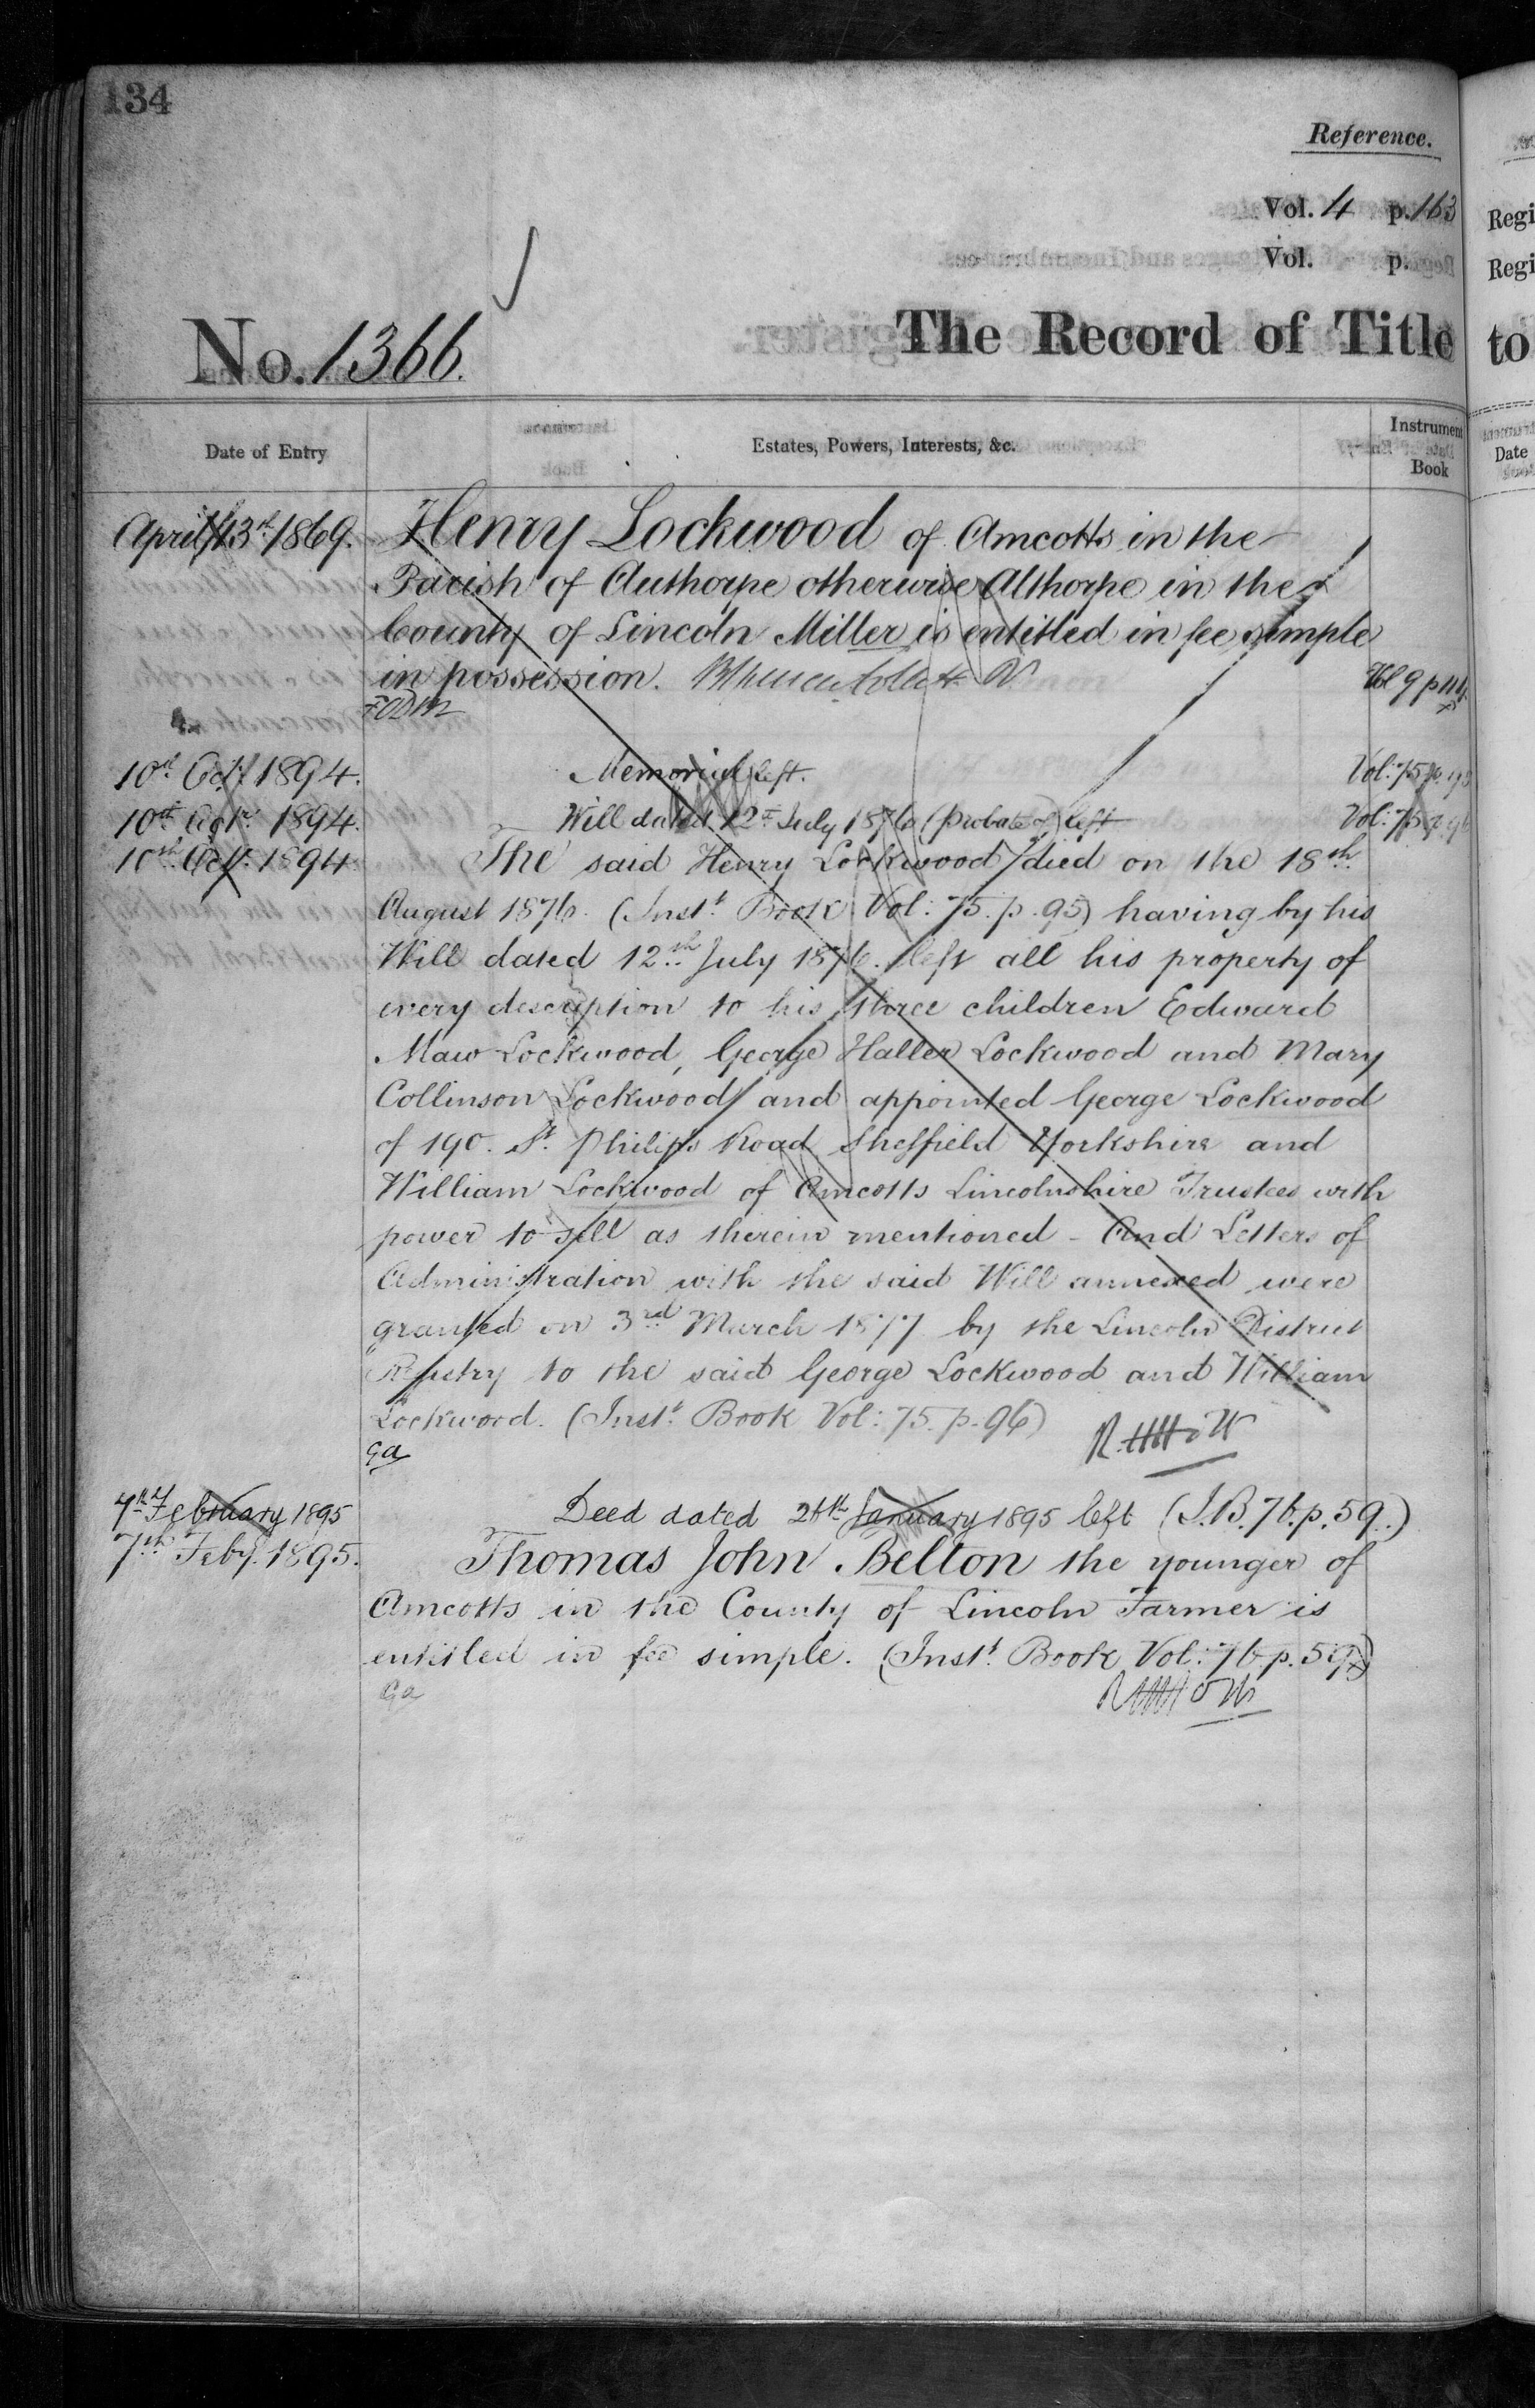 134
Reference.
Vol. 4 p. 163
Vol. p.
No. 1366.
The Record of Title
Date of Entry
Estates, Powers, Interests, &c.
Instrument Book
April 13th 1869. Henry Lockwood of Amcotts in the
Parish of Authorpe otherwise Althorpe in the
County of Lincoln Miller is entitled in fee simple
in possession. Vol 9 p 114
10th Oct. 1894. Memorial left. Vol: 75 p. 95
10th Octr. 1894. Will dated 12th July 1876 (probate of) left Vol: 75 p. 96
10th Oct. 1894 The said Henry Lockwood died on the 18th
August 1876. (Inst. Book Vol: 75. p. 95) having by his
Will dated 12th July 1876. left all his property of
every description to his three children Edward
Maw Lockwood, George Haller Lockwood and Mary
Collinson Lockwood and appointed George Lockwood
of 190. St. Philip's Road Sheffield Yorkshire and
William Lockwood of Amcotts Lincolnshire Trustees with
power to sell as therein mentioned - And Letters of
Administration with the said Will annexed were
granted on 3rd March 1877 by the Lincoln District
Registry to the said George Lockwood and William
Lockwood. (Inst. Book Vol: 75. p. 96)
Ga
7th February 1895 Deed dated 26th January 1895 left (I.B. 76. p. 59.)
7th Feby. 1895. Thomas John Belton the younger of
Amcotts in the County of Lincoln Farmer is
entitled in fee simple. (Inst. Book Vol: 76 p. 59)
Ga
Regi
Regi
to
Date